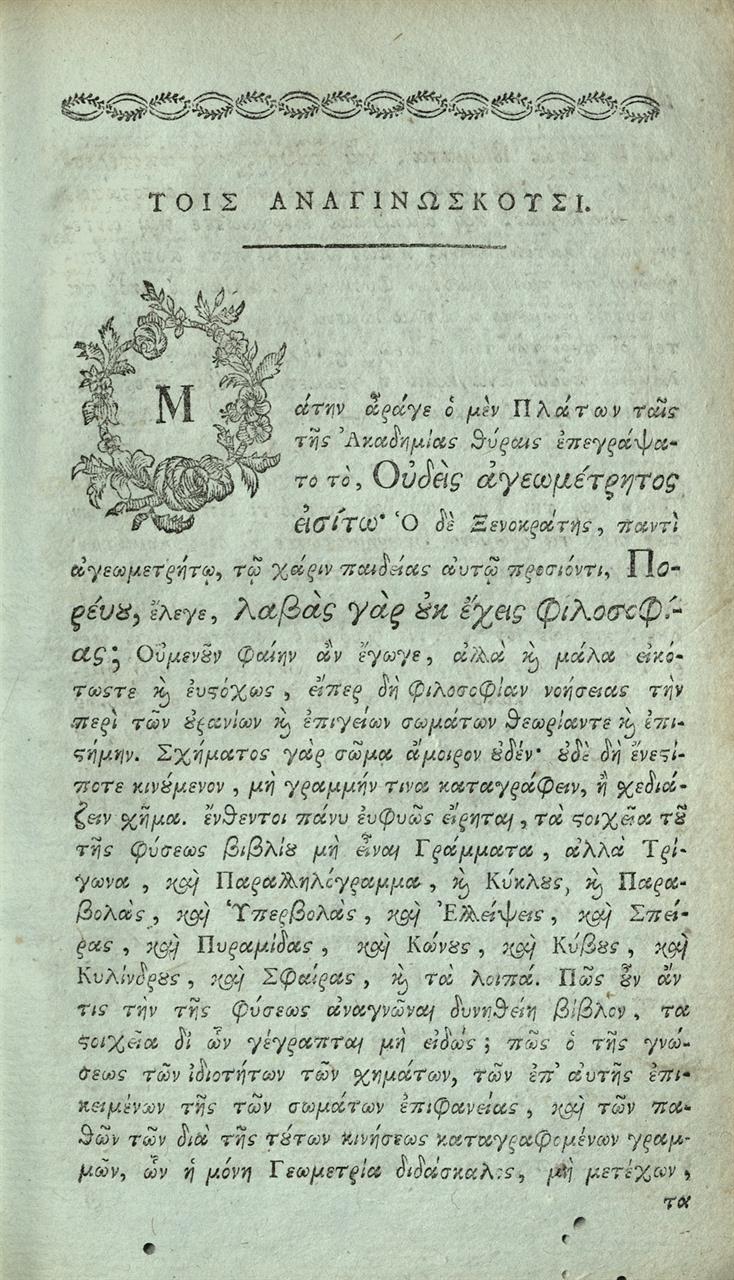 ΤΟΙΣ ΑΝΑΓΙΝΩΣΚΟΥΣΙ.
Μ
άτην ἆράγε ὁ μὲν Πλάτων ταῖς
τῆς Ἀκαδημίας θύραις ἐπεγράψα-
το τὸ, Οὐδεὶς ἀγεωμέτρητος
εἰσίτω· Ὁ δὲ Ξενοκράτης, παντὶ
ἀγεωμετρήτῳ, τῷ χάριν παιδείας αὐτῷ προσιόντι, Πο-
ρέυȣ, ἔλεγε, λαβὰς γὰρ ȣκ ἔχεις φιλοσοφί-
ας; Οὐμενȣ͂ν φαίην ἂν ἔγωγε, ἀλλὰ ϗ μάλα εἰκό-
τωςτε ϗ ἐυϛόχως, ἔιπερ δὴ φιλοσοφίαν νοήσειας τὴν
περὶ τῶν ȣρανίων ϗ ἐπιγείων σωμάτων θεωρίαντε ϗ ἐπι-
ϛήμην. Σχήματος γὰρ σῶμα ἄμοιρον ȣδέν· ȣδὲ δὴ ἔνεϛί-
ποτε κινȣ́μενον, μὴ γραμμήν τινα καταγράφειν, ἢ χεδιά-
ζειν χῆμα. ἔνθεντοι πάνυ ἐυφυῶς ἔιρηται, τὰ ϛοιχεῖα τȣ͂
τῆς φύσεως βιβλίȣ μὴ εἶναι Γράμματα, ἀλλὰ Τρί-
γωνα, καὶ Παραλληλόγραμμα, ϗ Κύκλȣς, ϗ Παρα-
βολὰς, καὶ Ὑπερβολὰς, καὶ Ἐλλείψεις, καὶ Σπεί-
ρας, καὶ Πυραμίδας, καὶ Κώνȣς, καὶ Κύβȣς, καὶ
Κυλίνδρȣς, καὶ Σφαίρας, ϗ τὰ λοιπά. Πῶς ȣ͂ν ἄν
τις τὴν τῆς φύσεως ἀναγνῶναι δυνηθείη βίβλον, τα
ϛοιχεῖα δἰ ὧν γέγραπται μὴ εἰδώς; πῶς ὁ τῆς γνώ-
σεως τῶν ἰδιοτήτων τῶν χημάτων, τῶν ἐπ' ἀυτῆς ἐπι-
κειμένων τῆς τῶν σωμάτων ἐπιφανείας, καὶ τῶν πα-
θῶν τῶν διὰ τῆς τȣ́των κινήσεως καταγραφομένων γραμ-
μῶν, ὧν ἡ μόνη Γεωμετρία διδάσκαλος, μὴ μετέχων,
τα